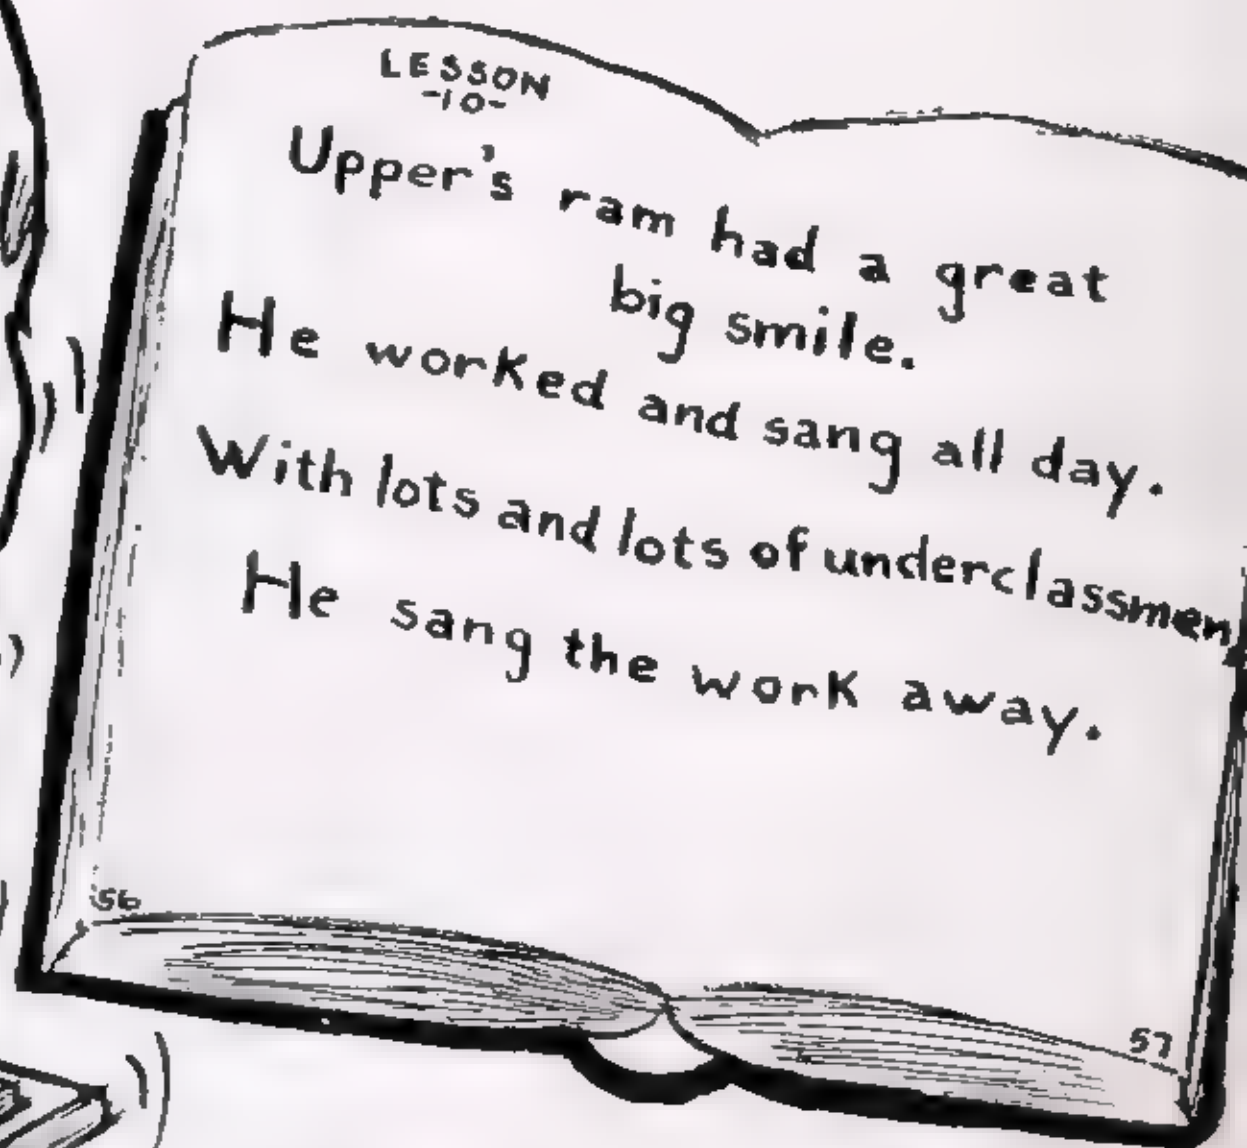 LESSON
-10-
Upper's ram had a great
big smile.
He worked and sang all day.
With lots and lots of underclassmen,
He sang the work away.
56
57